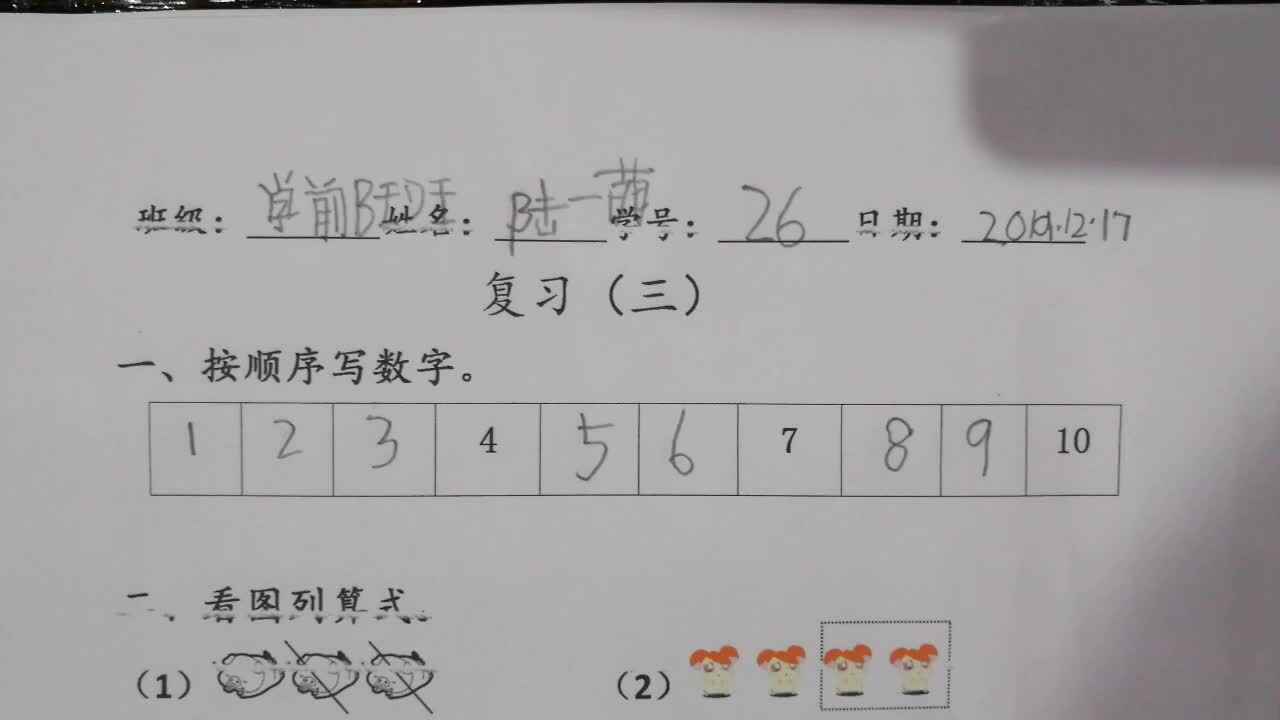 班级：学前B班 姓名：陆一萌 学号：26 日期：2019.12.17
复习（三）
一、按顺序写数字。
1 2 3 4 5 6 7 8 9 10
二、看图列算式。
（1） （2）